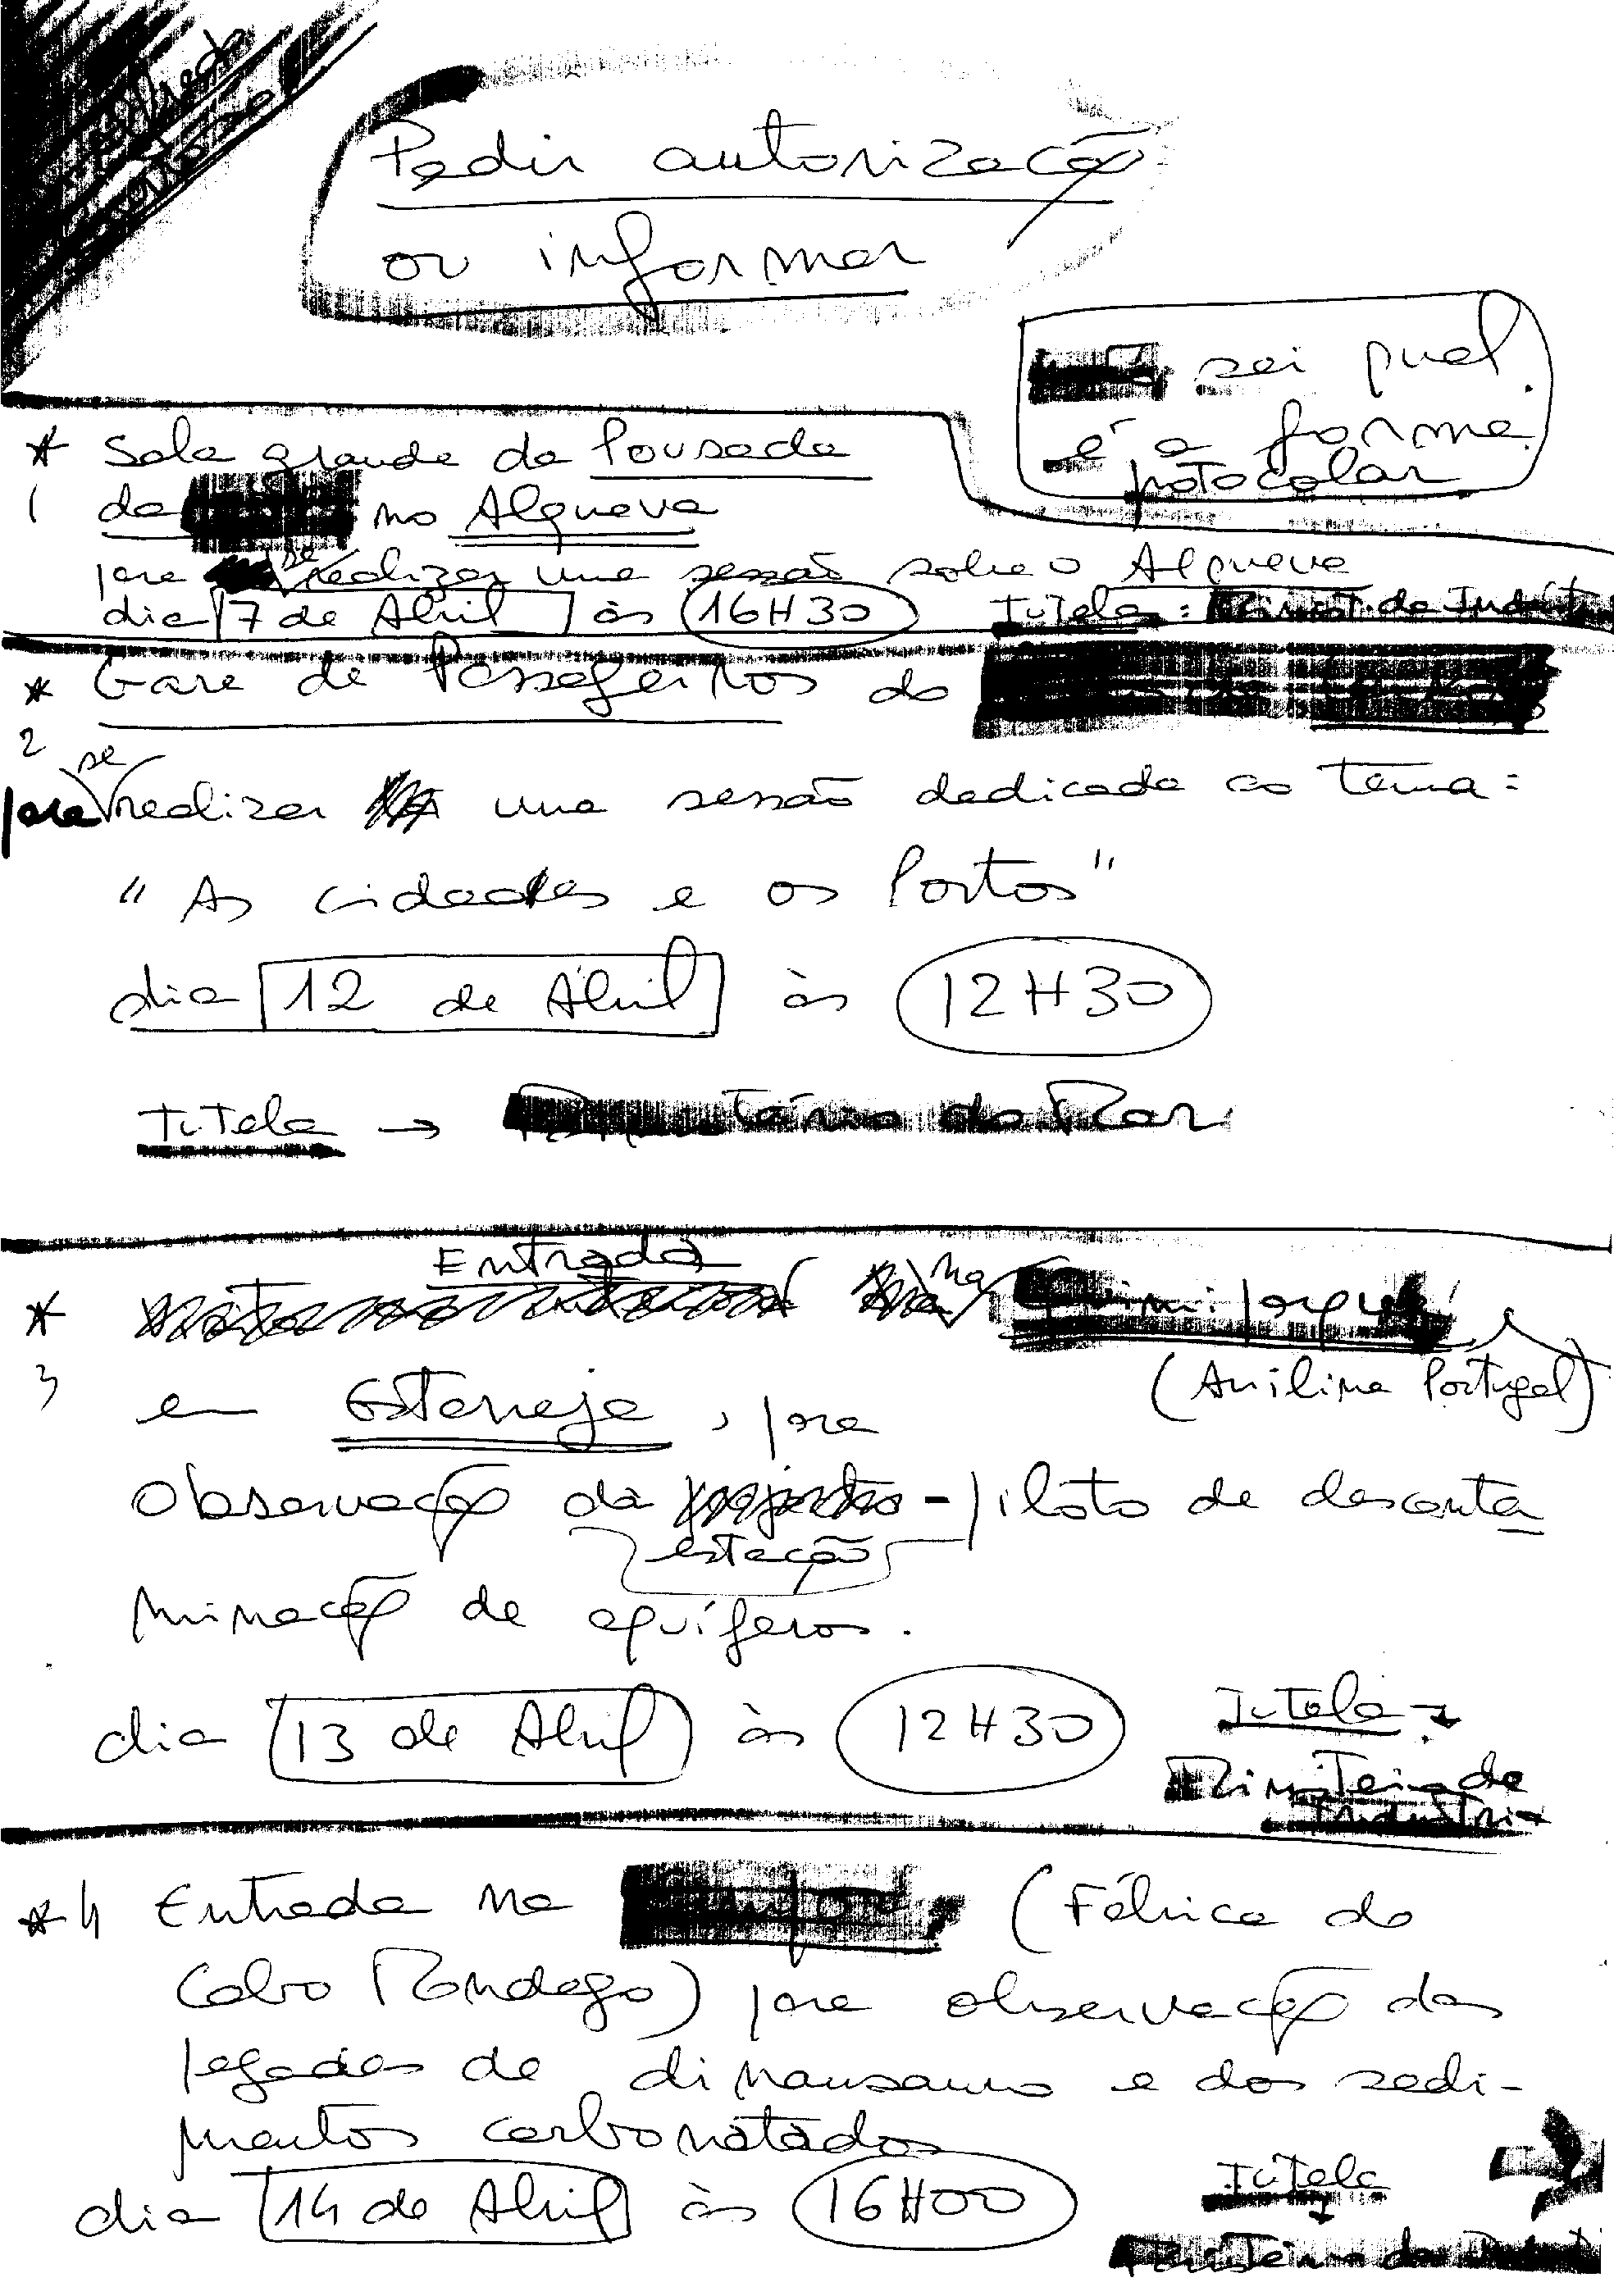 Pedir autorização
ou informar
sei qual
é a forma
protocolar
* Sala grande da Pousada
1 da no Alqueva
para se realizar uma sessão sobre o Alqueva
dia 17 de Abril às 16H30 Tutela:
* Gare de Passageiros do
2
para se realizar uma sessão dedicada ao tema:
"As cidades e os Portos"
dia 12 de Abril às 12H30
Tutela → do Mar
* Entrada na
(Anilina Portugal)
3 em Estarreja, para
observação da estação-piloto de desconta
minação de aquíferos.
dia 13 de Abril às 12H30 Tutela →
Ministério da
Indústria
* 4 Entrada na (Fábrica do
Cabo Mondego) para observação das
pegadas de dinausauros e dos sedi-
mentos carbonatados
dia 14 de Abril às 16H00 Tutela